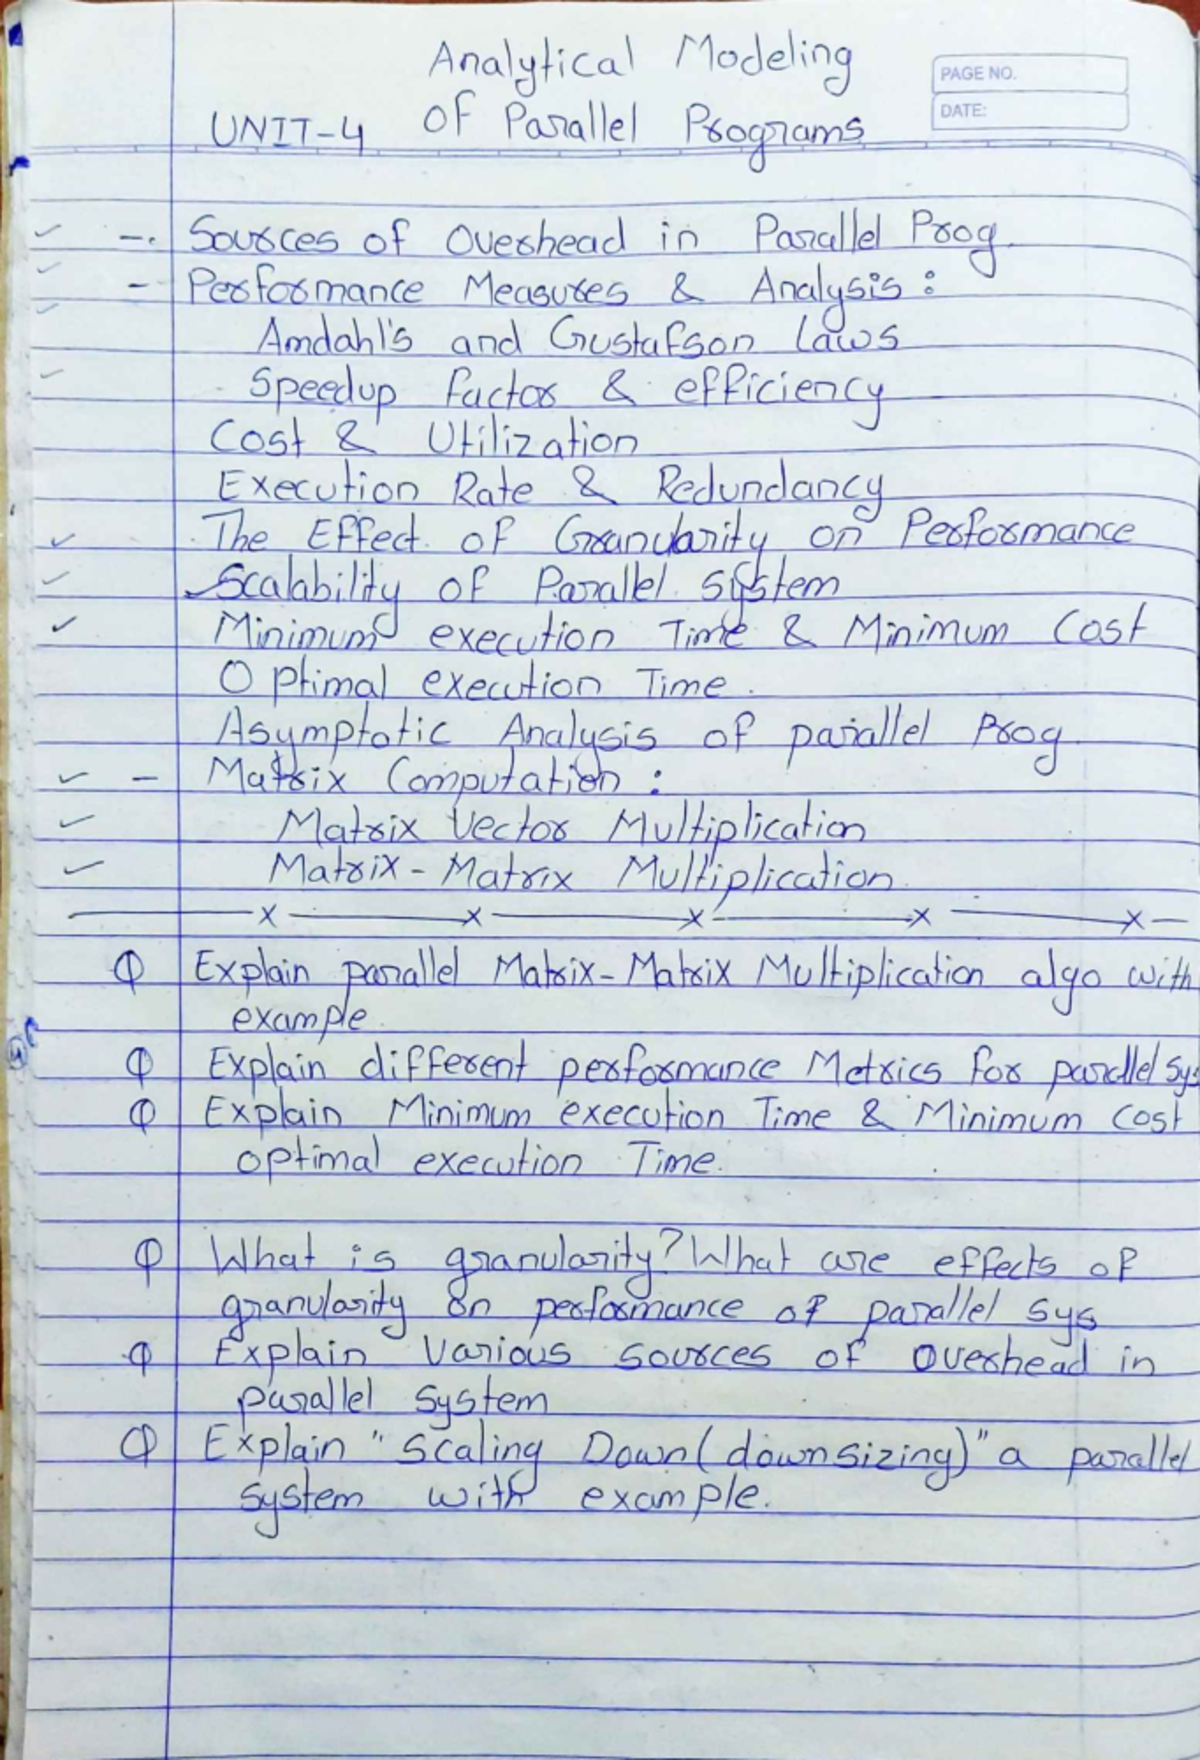 Analytical Modeling
PAGE NO.
DATE:
UNIT-4 OF Parallel Programs
- Sources of Overhead in Parallel Prog.
- Performance Measures & Analysis :
Amdahl's and Gustafson Laws
Speedup factor & efficiency
Cost & Utilization
Execution Rate & Redundancy
The Effect of Granularity on Performance
Scalability of Parallel System
Minimum execution Time & Minimum Cost
Optimal execution Time.
Asymptotic Analysis of parallel Prog
- Matrix Computation :
Matrix Vector Multiplication
Matrix-Matrix Multiplication.
Q Explain parallel Matrix-Matrix Multiplication algo with
example.
Q Explain different performance Metrics for parallel sys
Q Explain Minimum execution Time & Minimum cost
optimal execution Time.
Q What is granularity? What are effects of
granularity on performance of parallel sys
Q Explain Various sources of Overhead in
parallel system
Q Explain "Scaling Down (downsizing)" a parallel
system with example.